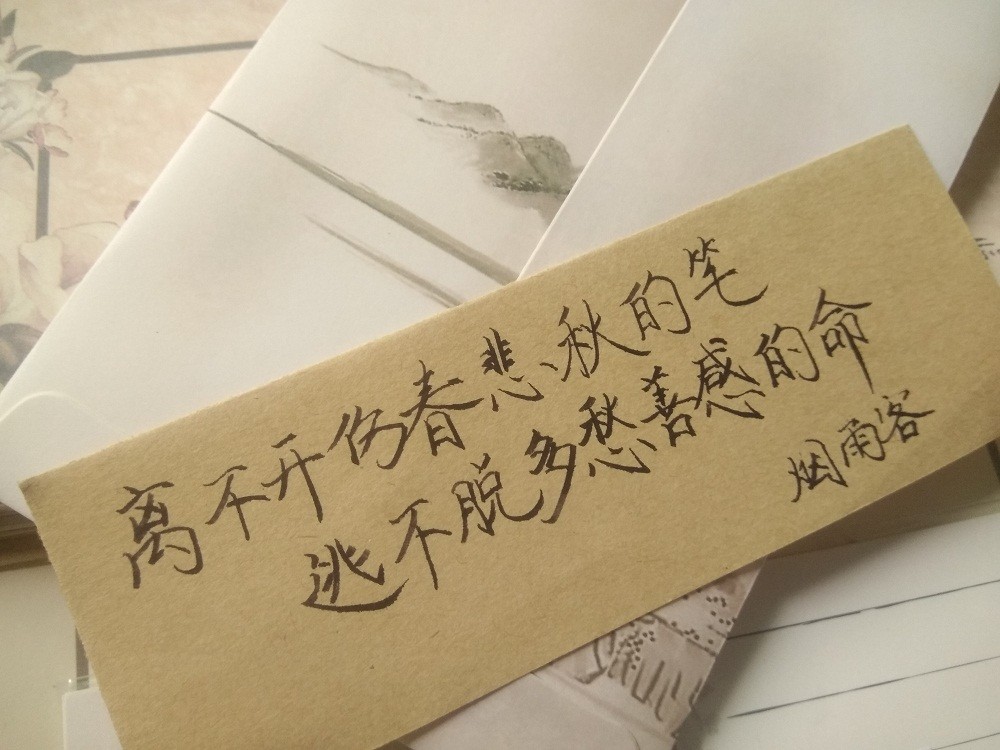 离不开伤春悲秋的笔
逃不脱多愁善感的命
烟雨客